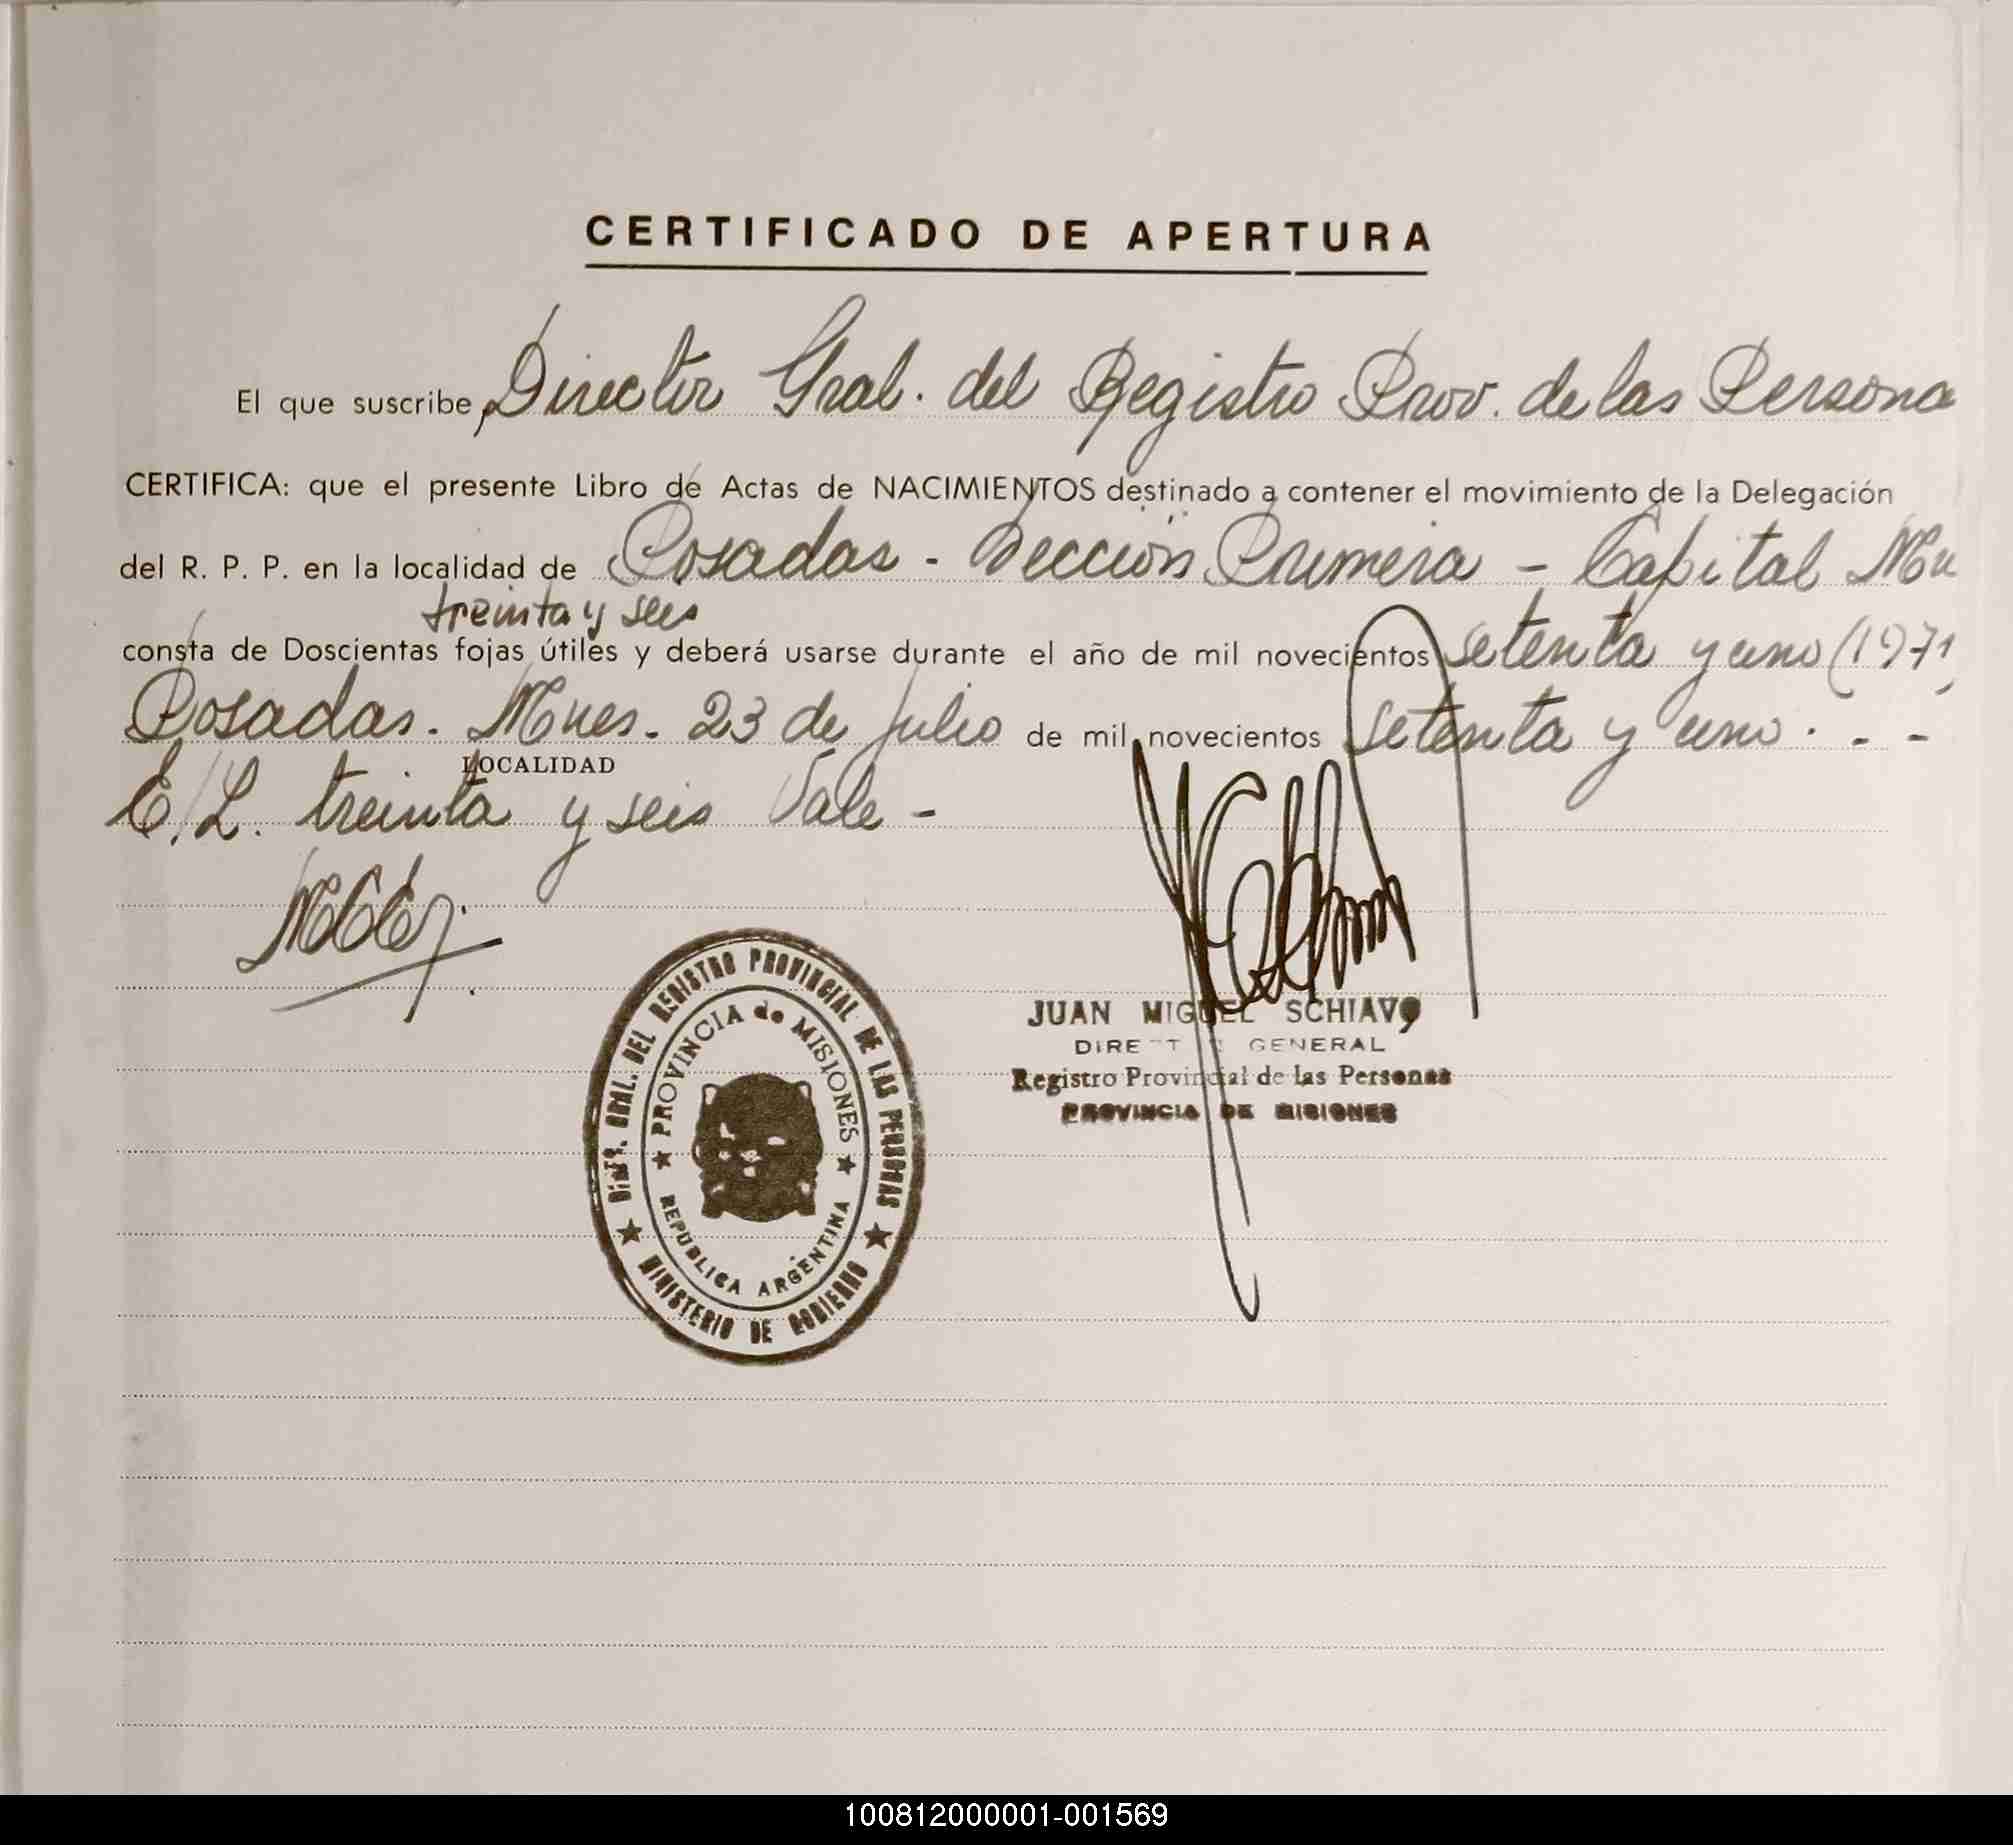 CERTIFICADO DE APERTURA
El que suscribe, Director Gral. del Registro Prov. de las Persona
CERTIFICA: que el presente Libro de Actas de NACIMIENTOS destinado a contener el movimiento de la Delegación
del R. P. P. en la localidad de Posadas - Sección Primera - Capital
treinta y seis
consta de Doscientas fojas útiles y deberá usarse durante el año de mil novecientos setenta y uno (1971
Posadas. Mnes. 23 de julio de mil novecientos setenta y uno. - -
LOCALIDAD
E/L. treinta y seis Vale -
DIREC. GRAL. DEL REGISTRO PROVINCIAL DE LAS PERSONAS
PROVINCIA de MISIONES
REPUBLICA ARGENTINA
MINISTERIO DE GOBIERNO
JUAN MIGUEL SCHIAVO
DIRECTOR GENERAL
Registro Provincial de las Personas
PROVINCIA DE MISIONES
100812000001-001569